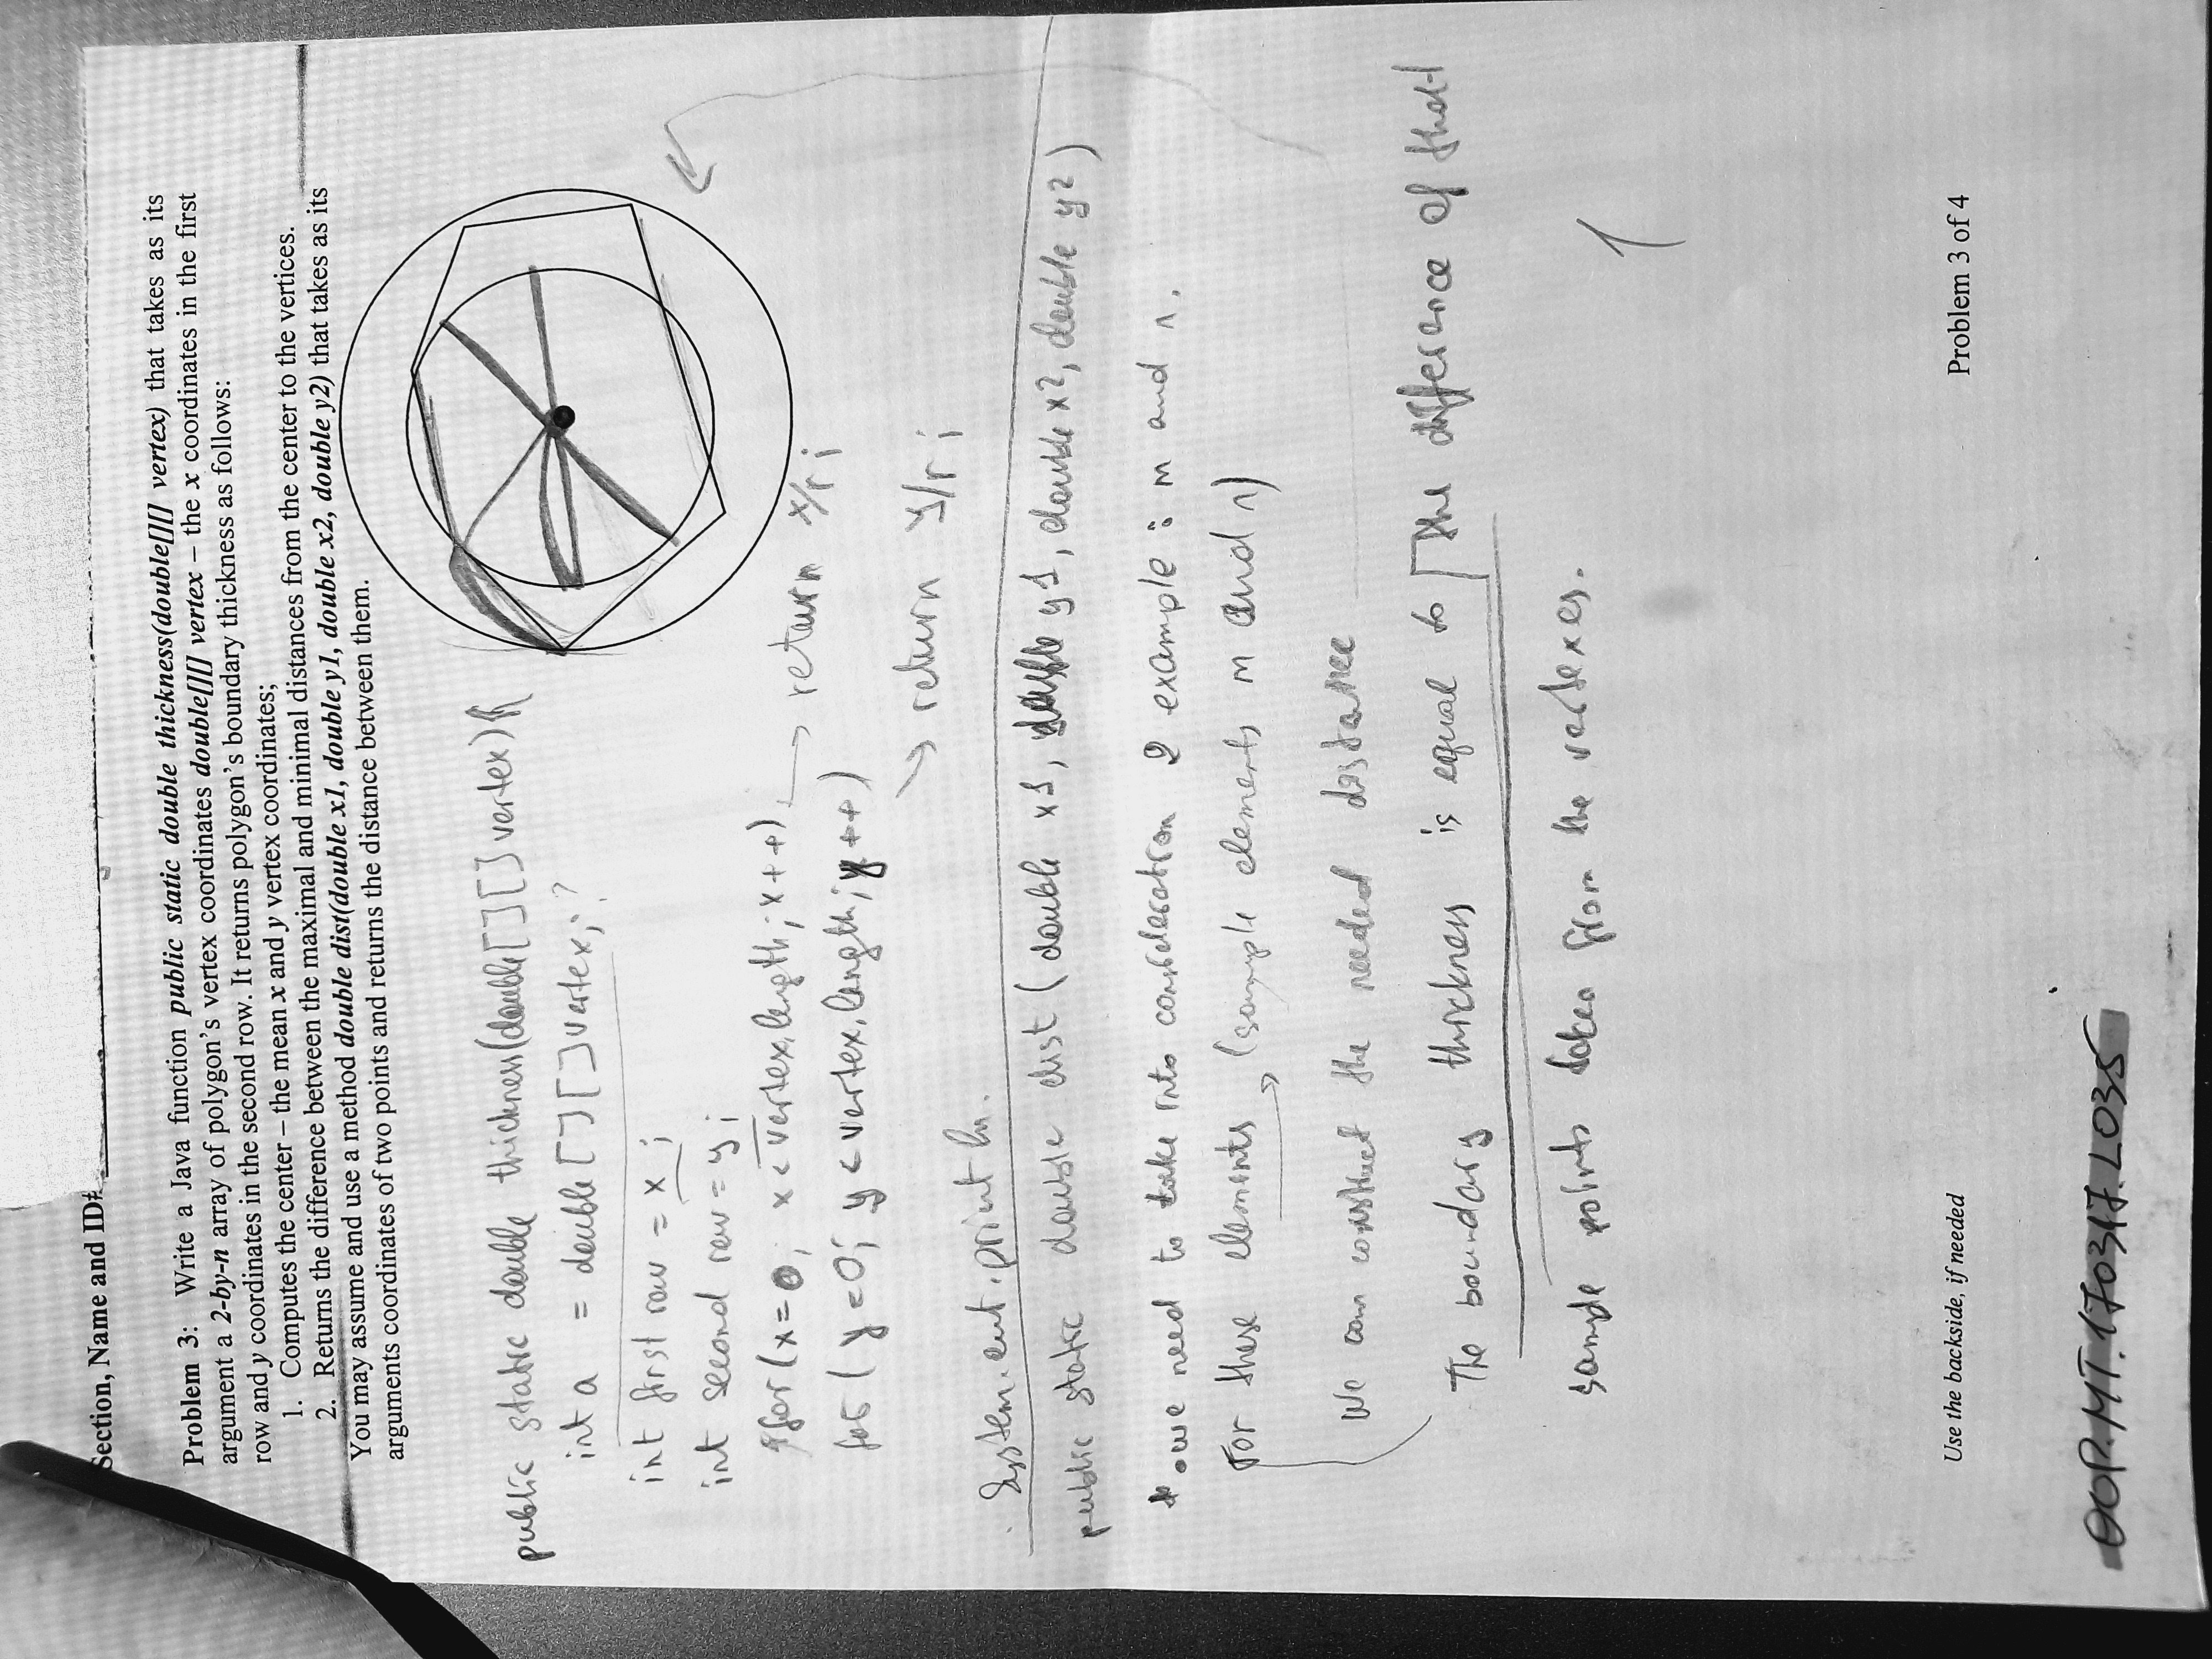 Section, Name and ID#
Problem 3: Write a Java function public static double thickness(double[][] vertex) that takes as its
argument a 2-by-n array of polygon's vertex coordinates double[][] vertex – the x coordinates in the first
row and y coordinates in the second row. It returns polygon's boundary thickness as follows:
1. Computes the center – the mean x and y vertex coordinates;
2. Returns the difference between the maximal and minimal distances from the center to the vertices.
You may assume and use a method double dist(double x1, double y1, double x2, double y2) that takes as its
arguments coordinates of two points and returns the distance between them.
public static double thickness(double[][] vertex){
int a = double[][] vertex; ?
int first row = x ;
int second row = y ;
for (x=0; x < vertex.length; x++) → return x/r ;
for ( y=0; y < vertex.length; y++)
→ return y/r ;
System.out.println.
public static double dist ( double x1, double y1, double x2, double y2 )
we need to take into consideration 2 example : m and n.
For these elements → (sample elements m and n)
We can construct the needed distance
The boundary thickness is equal to the difference of that
sample points taken from the vertexes.
1
Use the backside, if needed
Problem 3 of 4
OOP.MT.170317.L035